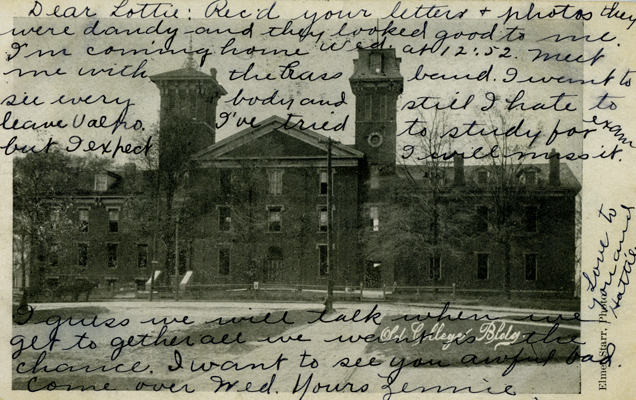 Dear Lottie: Rec'd your letters + photos they
were dandy and they looked good to me.
I'm coming home Wed at 12:52. Meet
me with the brass band. I want to
see every body and still I hate to
leave Valpo. I've tried to study for exam
but I expect I will miss it.
Love to
you and
Hattie
I guess we will talk when we
get to gether all we want is the
chance. I want to see you awful bad.
Come over Wed. Yours Jennie
Old College Bldg
Elmer Starr, Photo